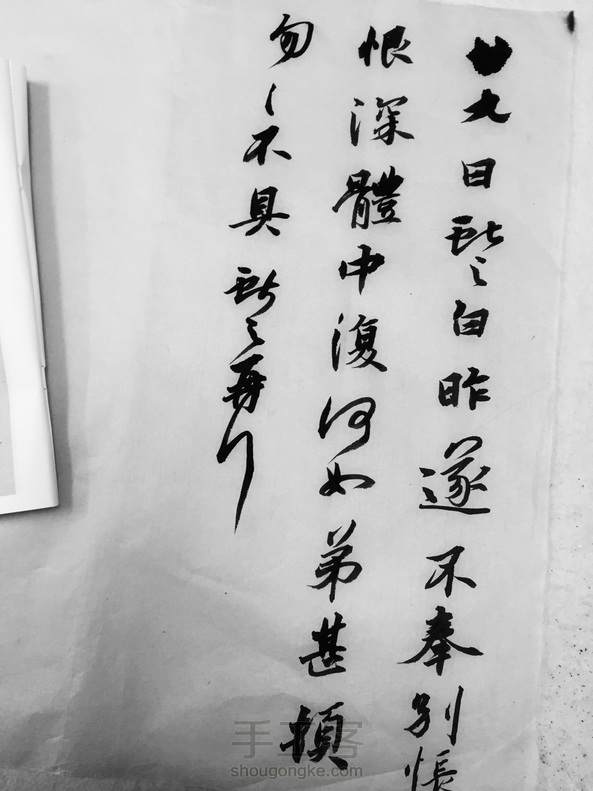 廿九日獻之白昨遂不奉別悵
恨深體中復何如弟甚頓
勿〻不具獻之再拜
手工客
shougongke.com